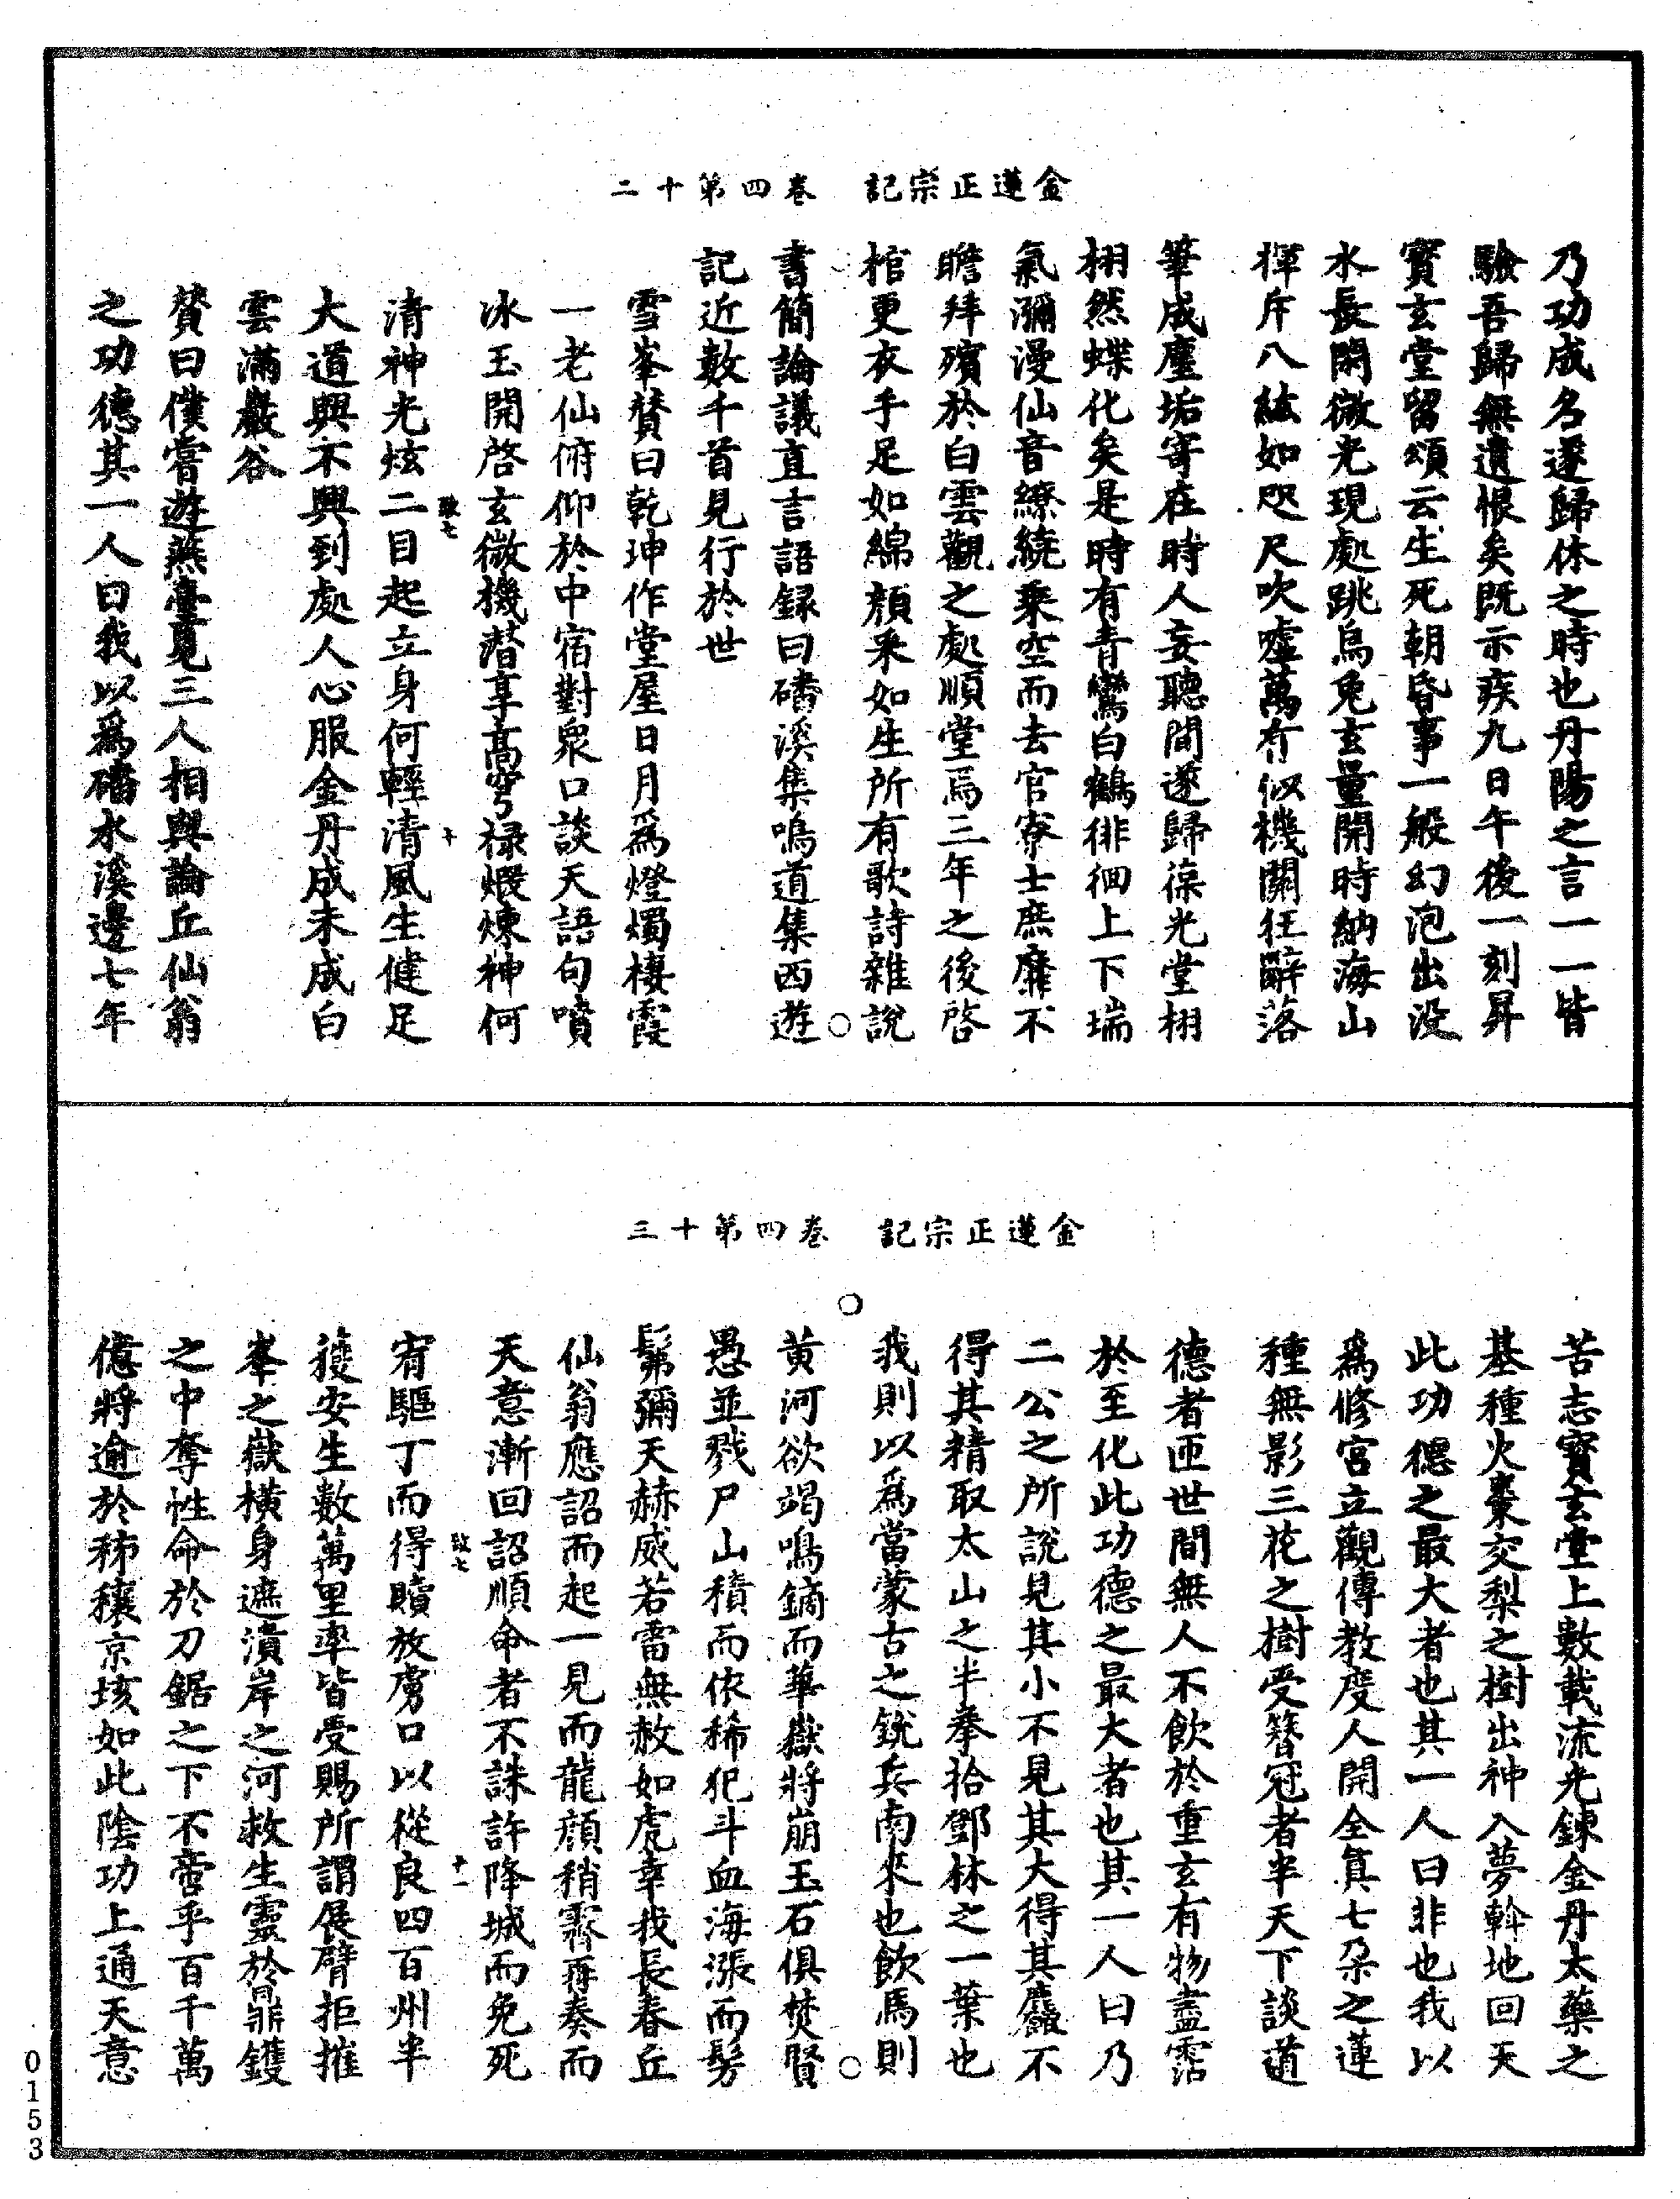 金蓮正宗記　卷四第十二
乃功成名遂歸休之時也丹陽之言一一皆
驗吾歸無遺恨矣既示疾九日午後一刻昇
寶玄堂留頌云生死朝昏事一般幻泡出没
水長閑微光現處跳烏兔玄量開時納海山
揮斥八紘如咫尺吹噓萬有似機關狂辭落
筆成塵垢寄在時人妄聽間遂歸葆光堂栩
栩然蝶化矣是時有青鸞白鶴徘徊上下瑞
氣瀰漫仙音繚繞乘空而去官寮士庶靡不
瞻拜殯於白雲觀之處順堂焉三年之後啓
棺更衣手足如綿顏采如生所有歌詩雜說
書簡論議直言語録曰磻溪集鳴道集西遊
記近數千首見行於世
雪峯賛曰乾坤作堂屋日月爲燈燭棲霞
一老仙俯仰於中宿對衆口談天語句噴
冰玉開啓玄微機潛享高穹禄煆煉神何
致七
十
清神光炫二目起立身何輕清風生健足
大道興不興到處人心服金丹成未成白
雲滿巖谷
賛曰僕嘗遊燕臺覓三人相與論丘仙翁
之功德其一人曰我以爲磻水溪邊七年
金蓮正宗記　卷四第十三
苦志寶玄堂上數載流光鍊金丹太藥之
基種火棗交梨之樹出神入夢斡地回天
此功德之最大者也其一人曰非也我以
爲修宮立觀傳教度人開全真七朵之蓮
種無影三花之樹受簪冠者半天下談道
德者匝世間無人不飲於重玄有物盡霑
於至化此功德之最大者也其一人曰乃
二公之所說見其小不見其大得其麤不
得其精取太山之半拳拾鄧林之一葉也
我則以爲當蒙古之銳兵南來也飲馬則
黃河欲竭鳴鏑而華嶽將崩玉石俱焚賢
愚並戮尸山積而依稀犯斗血海漲而髣
髴彌天赫威若雷無赦如虎幸我長春丘
仙翁應詔而起一見而龍顏稍霽再奏而
天意漸回詔順命者不誅許降城而免死
致七
十一
宥驅丁而得贖放虜口以從良四百州半
獲安生數萬里率皆受賜所謂展臂拒摧
峯之嶽橫身遮潰岸之河救生靈於鼎鑊
之中奪性命於刀鋸之下不啻乎百千萬
億將逾於秭穰京垓如此陰功上通天意
0153